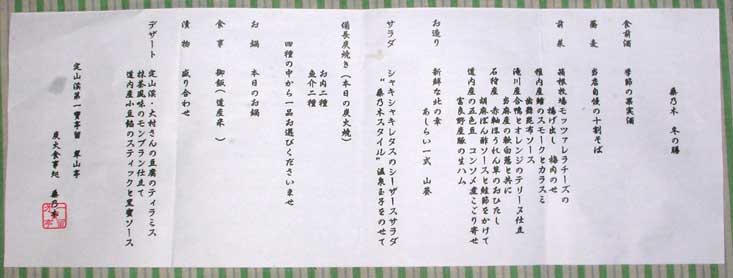 藤乃木 冬の膳
食前酒 季節の果実酒
蕎麦 当店自慢の十割そば
前菜 箱根牧場モッツァレラチーズの
揚げ出し 梅肉のせ
稚内産鱈のスモークとカラスミ
歯舞昆布ソース
滝川産合鴨とオレンジのテリーヌ仕立
当麻産の軟白葱と共に
石狩産 赤軸ほうれん草のおひたし
胡麻ぽん酢ソースと鮭節をかけて
道内産の五色豆 コンソメ煮こごり寄せ
富良野産豚の生ハム
お造り 新鮮な北の幸
あしらい一式 山葵
サラダ シャキシャキレタスのシーザースサラダ
“藤乃木スタイル” 温泉玉子をのせて
備長炭焼き(本日の炭火焼)
お肉二種
魚介二種
四種の中から一品お選びくださいませ
お鍋 本日のお鍋
食事 御飯(道産米 )
漬物 盛り合わせ
デザート 定山渓 大村さんの豆腐のティラミス
抹茶風味のモンブラン仕立て
道内産小豆餡のスティックと黒蜜ソース
定山渓第一寶亭留 翠山亭
炭火食事処 藤乃木